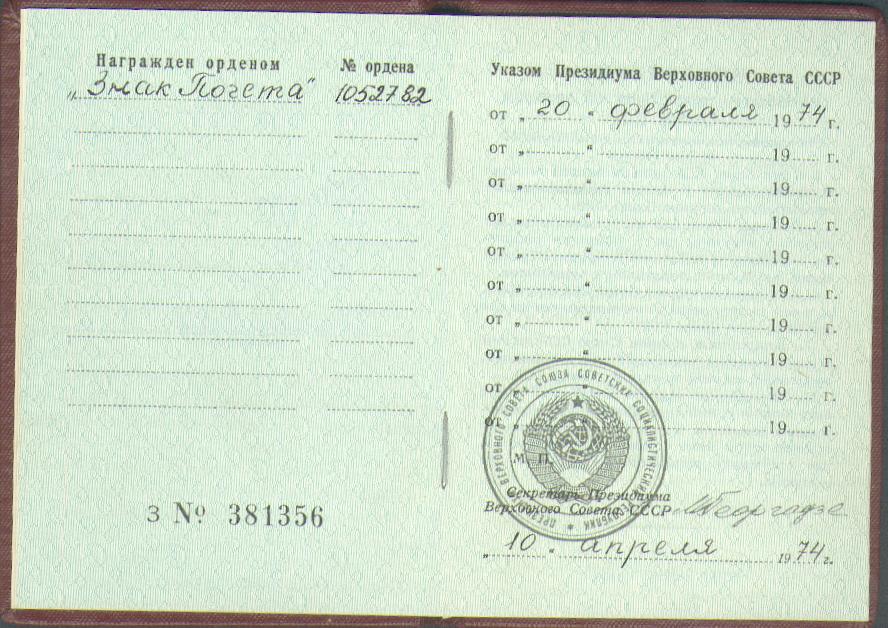 Награжден орденом № ордена
„Знак Почета“ 1052782
З № 381356
Указом Президиума Верховного Совета СССР
от „ 20 “ февраля 19 74 г.
от „ “ 19 г.
от „ “ 19 г.
от „ “ 19 г.
от „ “ 19 г.
от „ “ 19 г.
от „ “ 19 г.
от „ “ 19 г.
от „ “ 19 г.
от „ “ 19 г.
ПРЕЗИДИУМ ВЕРХОВНОГО СОВЕТА СОЮЗА СОВЕТСКИХ СОЦИАЛИСТИЧЕСКИХ РЕСПУБЛИК
М. П.
Секретарь Президиума
Верховного Совета СССР МГеоргадзе
„ 10 “ апреля 19 74 г.